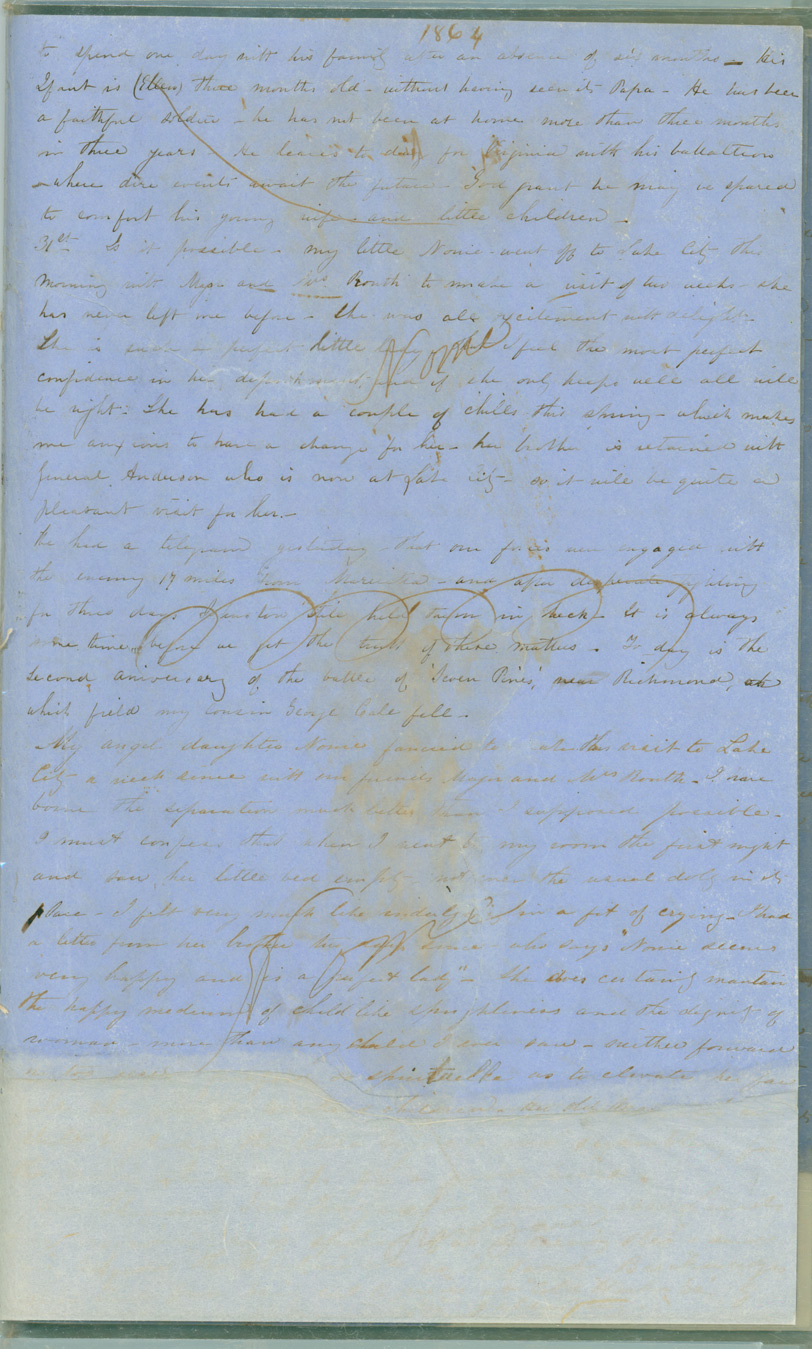 1864
to spend one day with his family after an absence of six months - His
Infant is (Ellen) three months old - without having seen its Papa - He has been
a faithful soldier - he has not been at home more than three months
in three years - He leaves to day for Virginia with his battallion
where dire events await the future - God grant he may be spared
to comfort his young wife and little children -
31st Is it possible - my little Nonie went off to Lake City this
morning with Major and Mrs Routh to make a visit of two weeks - she
has never left me before - She was all excitement with delight -
She is such a perfect little I feel the most perfect
Nonie
confidence in her deportment, and if she only keeps well all will
be right. She has had a couple of chills this spring - which makes
me anxious to have a change for her - her brother is retained with
General Anderson who is now at Lake City - so it will be quite a
pleasant visit for her. -
We had a telegram yesterday that our forces were engaged with
the enemy 17 miles from Marietta - and after desperate fighting
for three days Johnston still held them in check - It is always
some time before we get the truth of these matters - To day is the
second aniversary of the battle of 'Seven Pines', near Richmond, on
which field my cousin George Call fell -
My angel daughter Nonie fancied to make this visit to Lake
City a week since with our friends Major and Mrs Routh - I have
borne the separation much better than I supposed possible -
I must confess that when I went to my room the first night
and saw her little bed empty not even the usual dolly in its
place - I felt very much like indulging in a fit of crying - I had
a letter from her brother since who says "Nonie seems
very happy and is a perfect lady" - She does certainly maintain
the happy medium of child like sprightliness and the dignity of
woman - more than any child I ever saw - neither forward
spirited as to elevate her